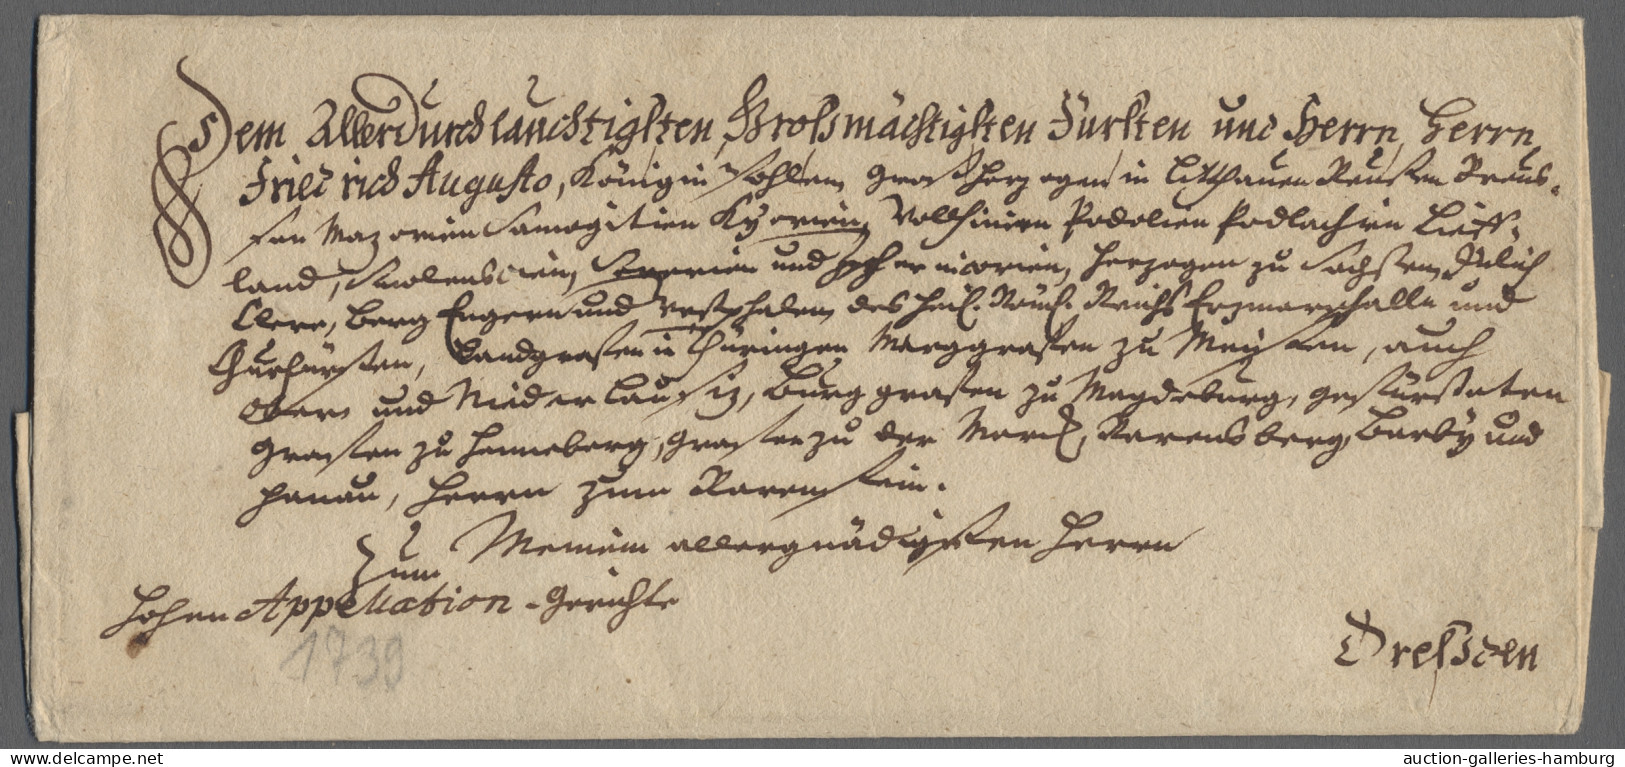 Dem Allerdurchlauchtigsten, Großmächtigsten Fürsten und Herrn, Herrn
Friedrich Augusto, König in Pohlen, Groß Herzogen in Litthauen Reußen Preus-
sen Mazovien Samogitien Kyovien, Vollhinien Podolien Podlachien Lieff-
land, Smolenscien, Severien und Czernicovien, Herzogen zu Sachßen, Jülich
Cleve, Berg Engern und Westphalen, des Heil. Röm. Reichs Erzmarschalln und
Churfürsten, Landgraffen in Thüringen Marggraffen zu Meißen, auch
Ober und Niederlausiz, Burggraffen zu Magdeburg, gefürsteten
Graffen zu Henneberg, Graffen zu der Marck, Ravensberg, Barby und
Hanau, Herrn zum Ravenstein.
Meinem allergnädigsten Herrn
Zum
Hohen Appellation-Gerichte
Dreßden
1739
auction-galleries-hamburg
https://www.delcampe.net